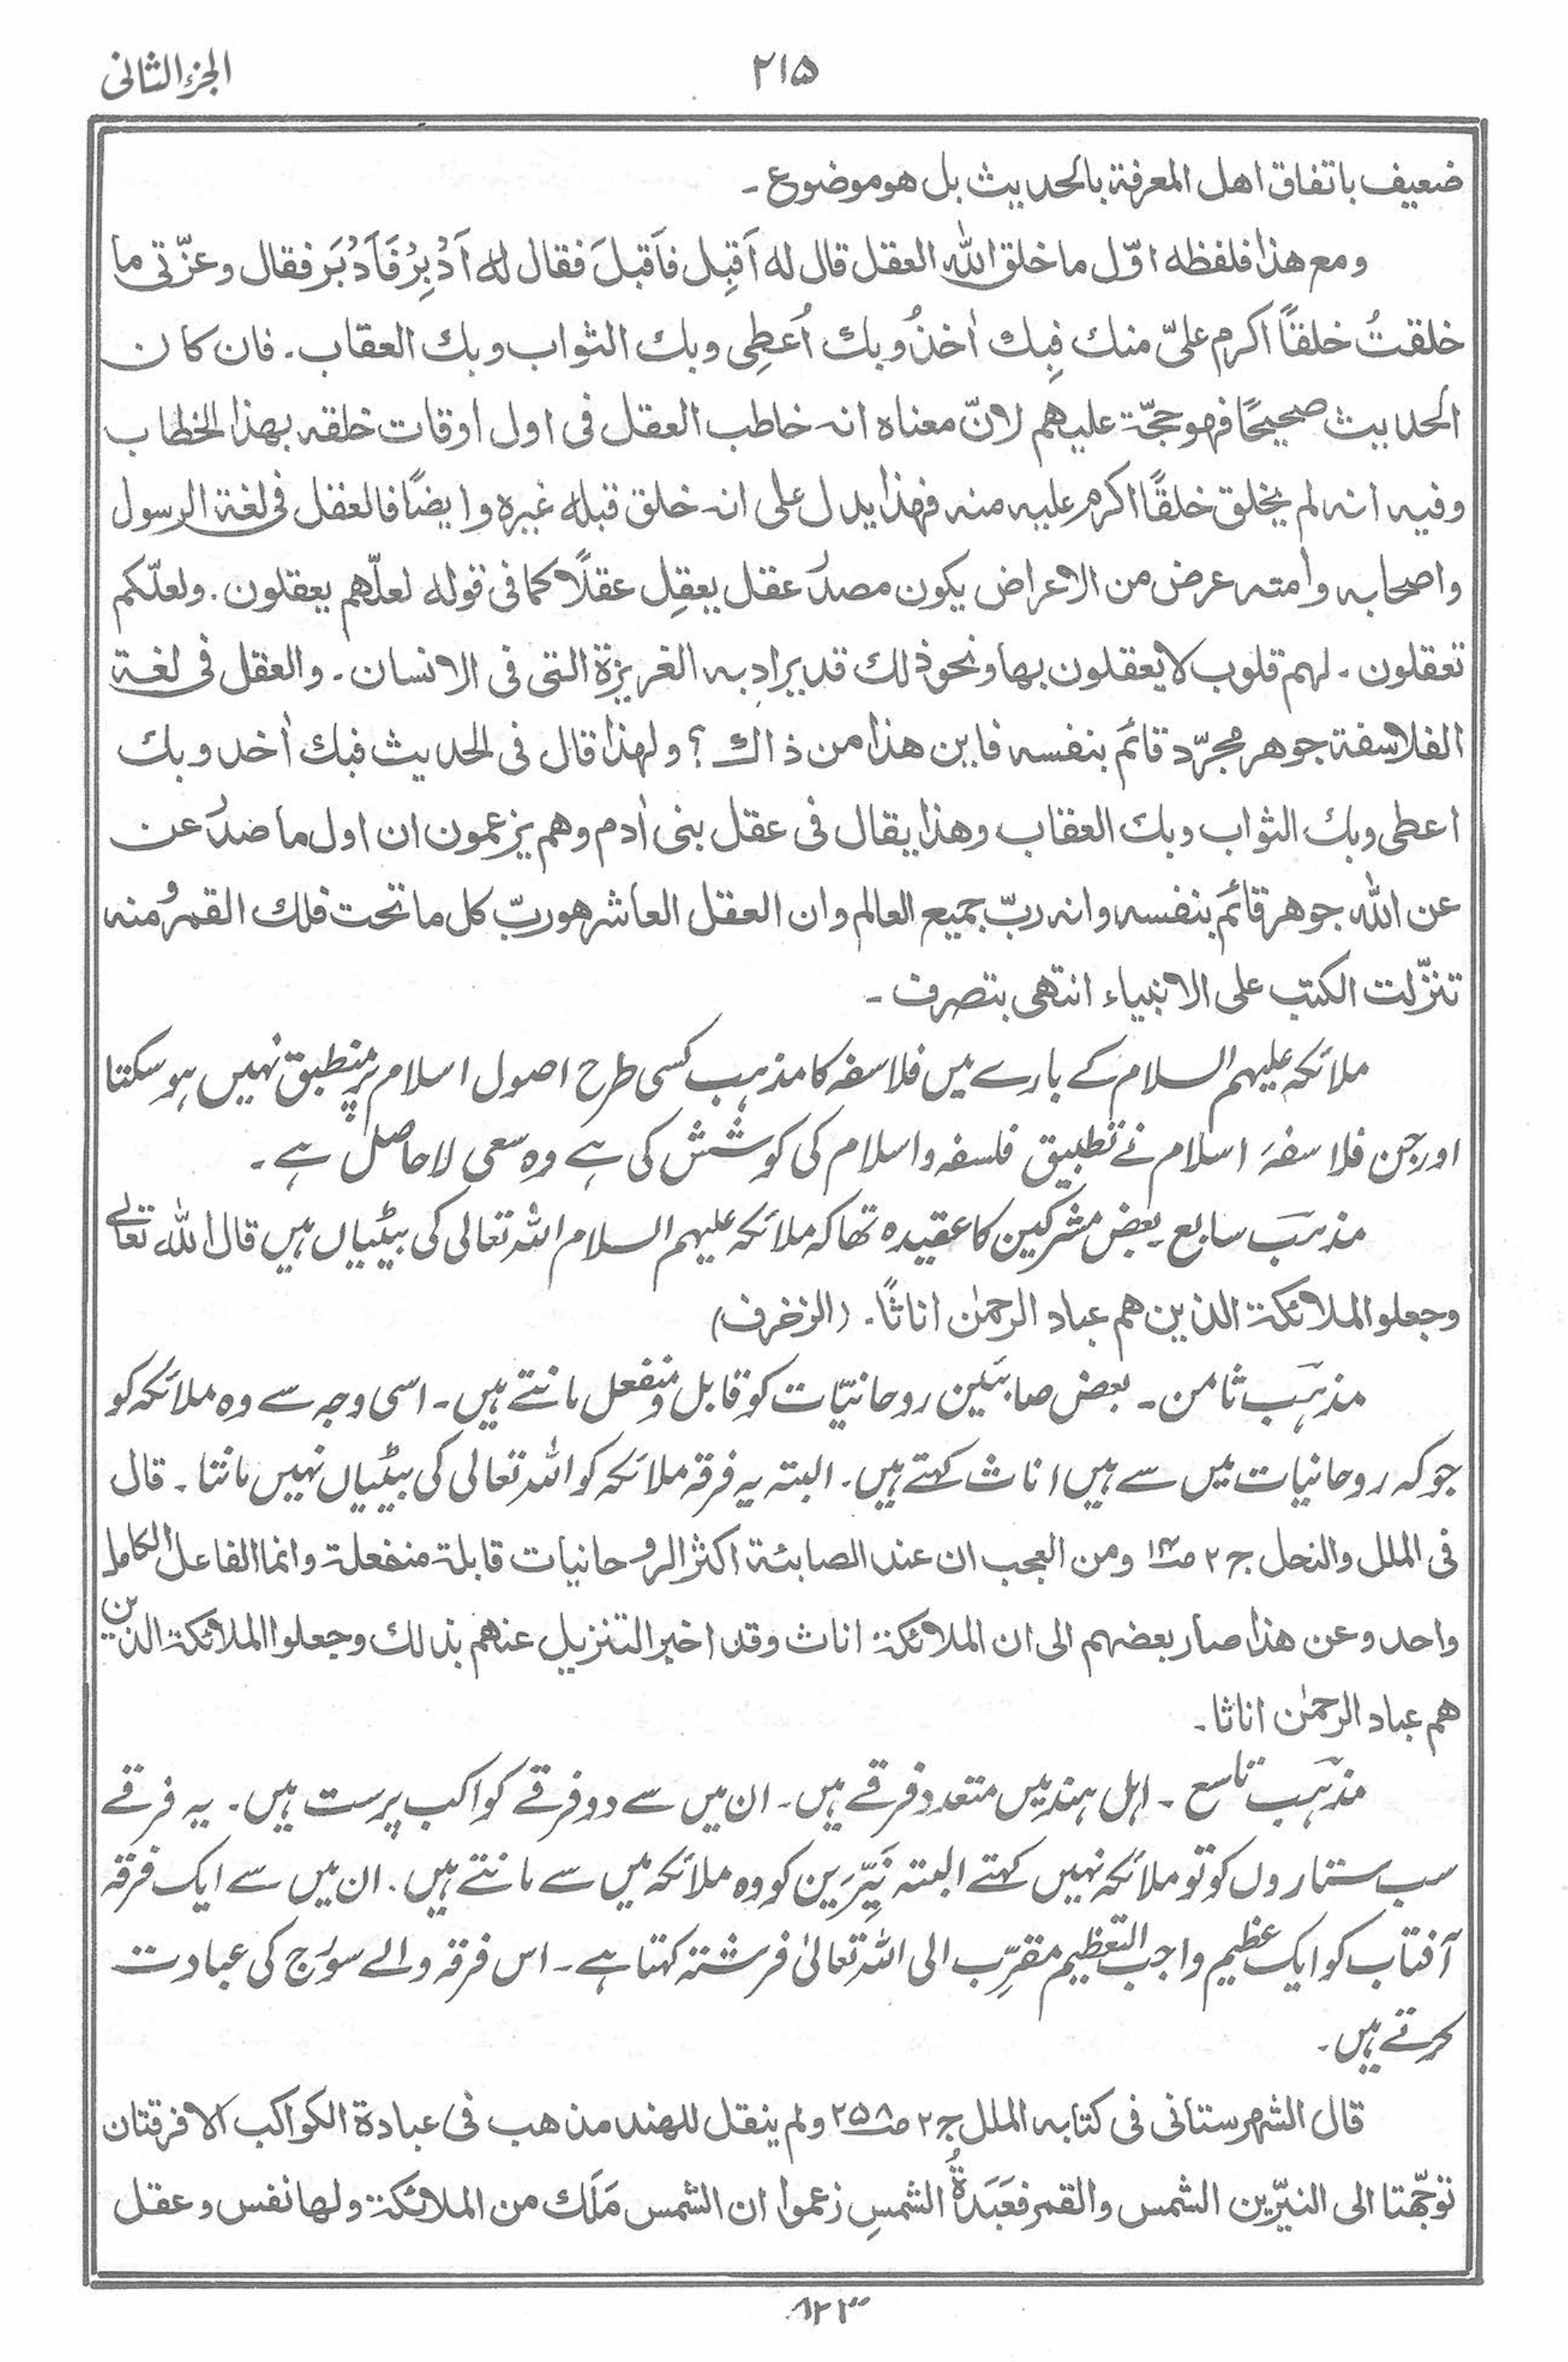 الجزء الثانی
۲۱۵
ضعیف باتفاق اهل المعرفة بالحدیث بل هو موضوع ۔
ومع هذا فلفظه اوّل ما خلق الله العقل قال له اَقبِل فاَقبلَ فقال له اَدْبِرْ فَاَدْبَر فقال وعزّتی ما
خلقتُ خلقًا اکرم علیّ منك فبِك اٰخذُ وبك اُعطِی وبك الثواب وبك العقاب ۔ فان کان
الحدیث صحیحًا فهو حجّة علیهم لانّ معناہ انہ خاطب العقل فی اول اوقات خلقہ بهذا الخطاب
وفیہ انہ لم یخلق خلقًا اکرم علیہ منہ فهذا یدل علی انہ خلق قبله غیرہ وایضًا فالعقل فی لغة الرسول
واصحابہ وامتہ عرض من الاعراض یکون مصدر عقل یعقِل عقلًا کما فی قوله لعلّهم یعقلون . ولعلّکم
تعقلون ۔ لهم قلوب لا یعقلون بها ونحو ذلك قد یراد به الغریزة التی فی الانسان ۔ والعقل فی لغة
الفلاسفة جوهر مجرّد قائم بنفسه فاین هذا من ذاك ؟ ولهذا قال فی الحدیث فبك اٰخذ وبك
اعطی وبك الثواب وبك العقاب وهذا یقال فی عقل بنی اٰدم وهم یزعمون ان اول ما صدر عن
عن الله جوهر قائم بنفسه وانه ربّ جمیع العالم وان العقل العاشر هو ربّ کل ما تحت فلك القمر ومنہ
تنزّلت الکتب علی الانبیاء انتهی بتصرف ۔
ملائکہ علیہم السلام کے بارے میں فلاسفہ کا مذہب کسی طرح اصول اسلام پر منطبق نہیں ہو سکتا
اور جن فلاسفۂ اسلام نے تطبیق فلسفہ واسلام کی کوشش کی ہے وہ سعی لاحاصل ہے ۔
مذہب سابع ۔ بعض مشرکین کا عقیدہ تھا کہ ملائکہ علیہم السلام اللہ تعالی کی بیٹیاں ہیں قال الله تعالی
وجعلوا الملائکة الذین هم عباد الرحمٰن اناثًا ۔ (الزخرف)
مذہب ثامن ۔ بعض صابئین روحانیّات کو قابل و منفعل مانتے ہیں ۔ اسی وجہ سے وہ ملائکہ کو
جو کہ روحانیات میں سے ہیں اناث کہتے ہیں ۔ البتہ یہ فرقہ ملائکہ کو اللہ تعالی کی بیٹیاں نہیں مانتا ۔ قال
فی الملل والنحل ج۲ ص۱۴ ومن العجب ان عند الصابئة اکثر الروحانیات قابلة منفعلة وانما الفاعل الکامل
واحد وعن هذا صار بعضهم الی ان الملائکة اناث وقد اخبر التنزیل عنهم بذلك وجعلوا الملائکة الذین
هم عباد الرحمٰن اناثا ۔
مذہب تاسع ۔ اہل ہند میں متعدد فرقے ہیں ۔ ان میں سے دو فرقے کواکب پرست ہیں ۔ یہ فرقے
سب ستاروں کو تو ملائکہ نہیں کہتے البتہ نَیِّرَین کو وہ ملائکہ میں سے مانتے ہیں ۔ ان میں سے ایک فرقہ
آفتاب کو ایک عظیم واجب التعظیم مقرِّب الی اللہ تعالیٰ فرشتہ کہتا ہے ۔ اس فرقہ والے سورج کی عبادت
کرتے ہیں ۔
قال الشهرستانی فی کتابہ الملل ج۲ ص۲۵۸ ولم ینقل للهند مذهب فی عبادة الکواکب الا فرقتان
توجّهتا الی النیّرین الشمس والقمر فعَبَدَةُ الشمسِ زعموا ان الشمس مَلَك من الملائکة ولها نفس وعقل